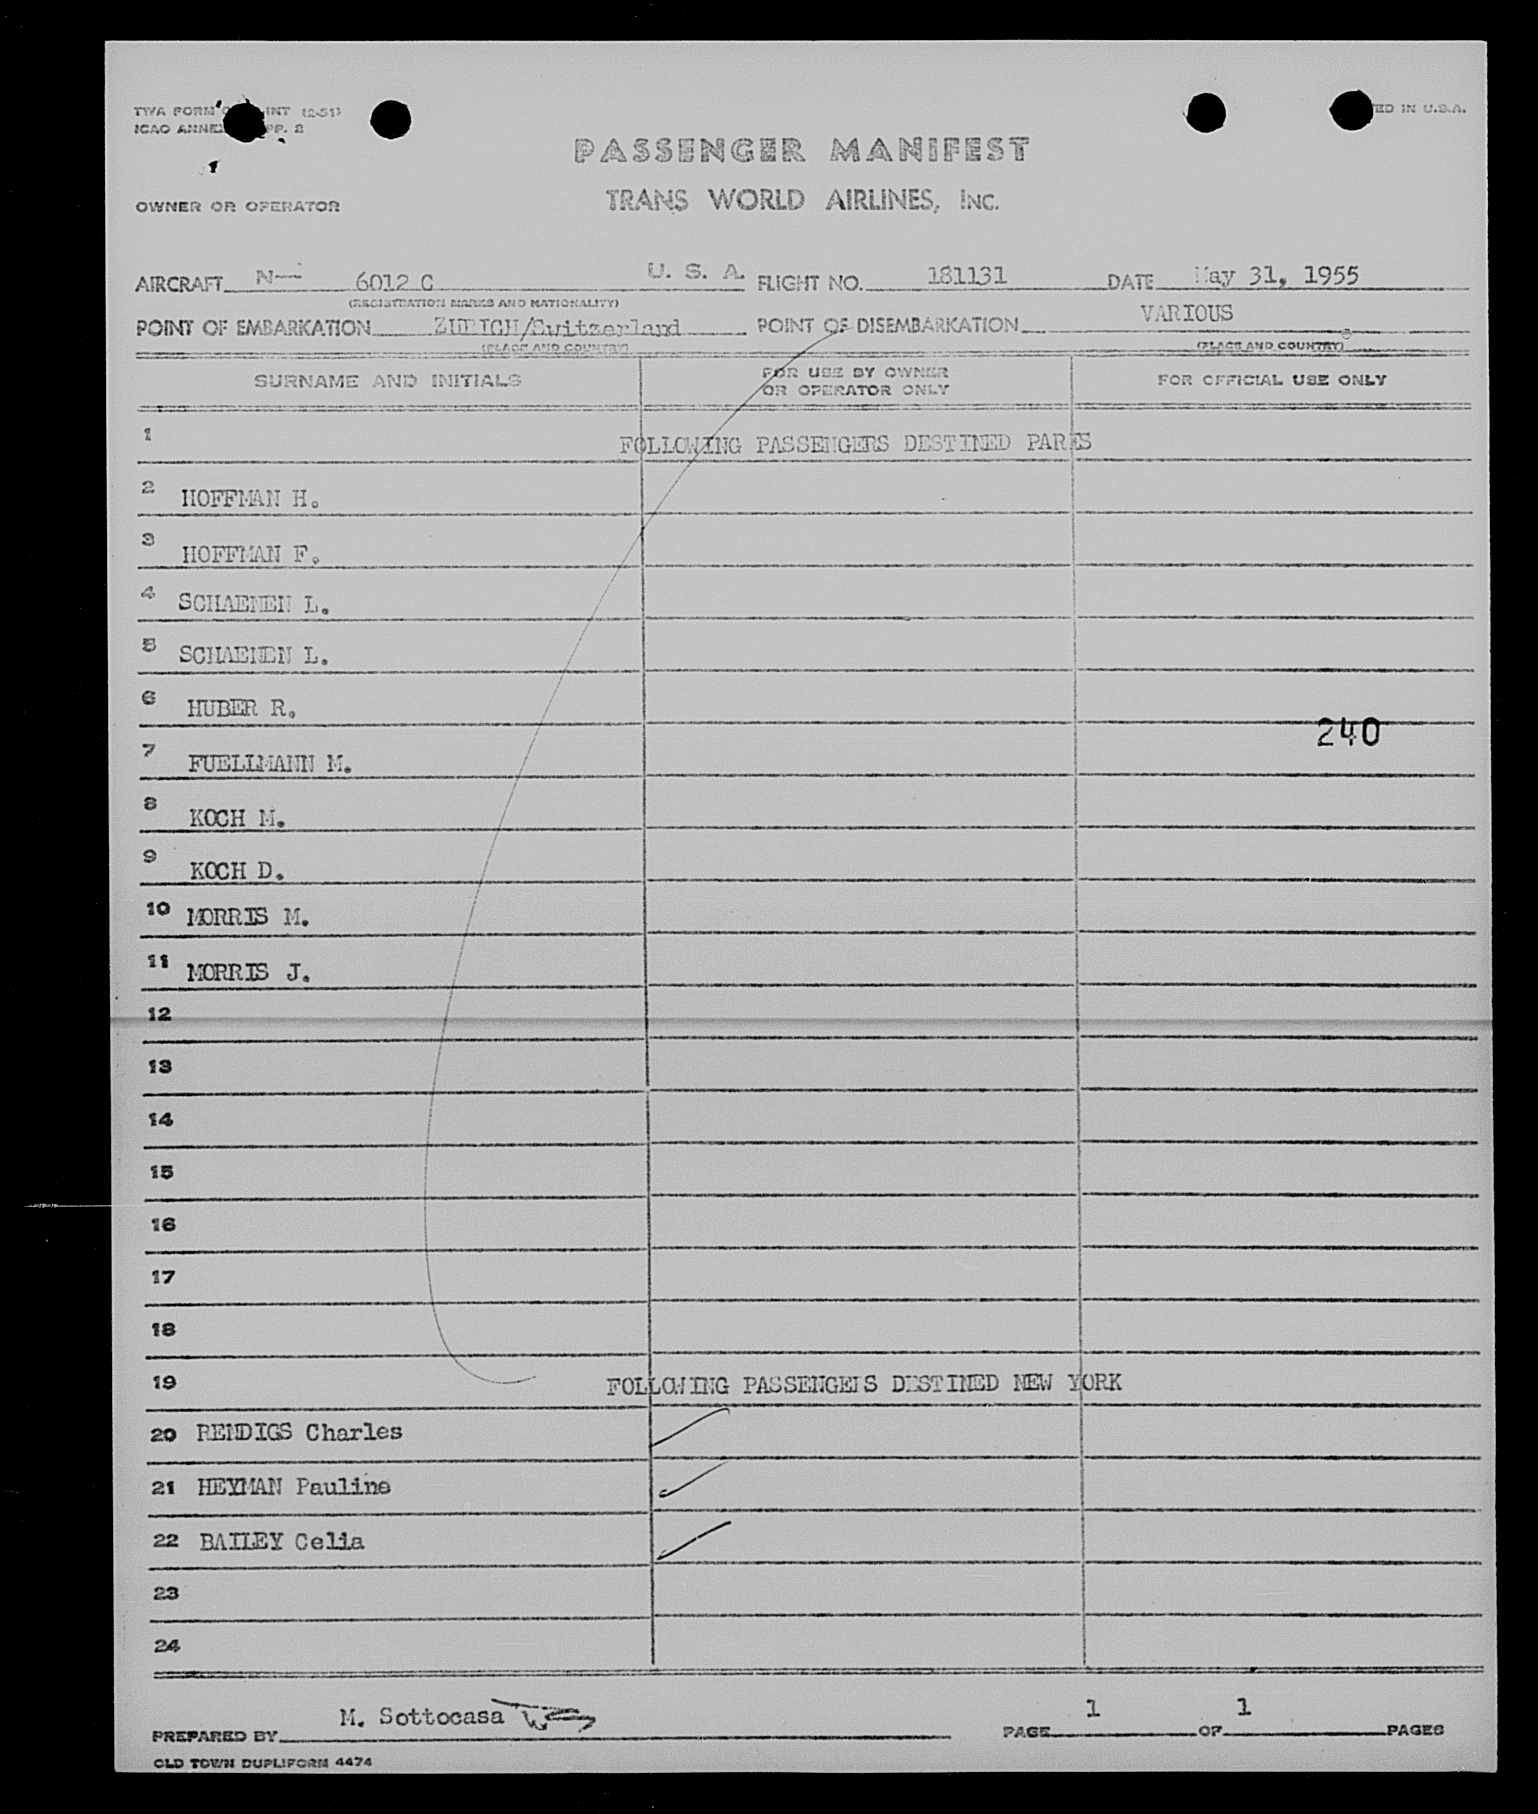 TWA FORM INT (2-51)
ICAO ANNEX PP. 2
ED IN U.S.A.
PASSENGER MANIFEST
OWNER OR OPERATOR
TRANS WORLD AIRLINES, INC.
AIRCRAFT N- 6012 C U. S. A. FLIGHT NO. 181131 DATE May 31, 1955
(REGISTRATION MARKS AND NATIONALITY)
POINT OF EMBARKATION ZURICH/Switzerland POINT OF DISEMBARKATION VARIOUS
(PLACE AND COUNTRY) (PLACE AND COUNTRY)
SURNAME AND INITIALS FOR USE BY OWNER OR OPERATOR ONLY FOR OFFICIAL USE ONLY
1 FOLLOWING PASSENGERS DESTINED PARIS
2 HOFFMAN H.
3 HOFFMAN F.
4 SCHAENEN L.
5 SCHAENEN L.
6 HUBER R.
240
7 FUELLMANN M.
8 KOCH M.
9 KOCH D.
10 MORRIS M.
11 MORRIS J.
12
13
14
15
16
17
18
19 FOLLOWING PASSENGERS DESTINED NEW YORK
20 RENDIGS Charles
21 HEYMAN Pauline
22 BAILEY Celia
23
24
PREPARED BY M. Sottocasa PAGE 1 OF 1 PAGES
OLD TOWN DUPLIFORM 4474